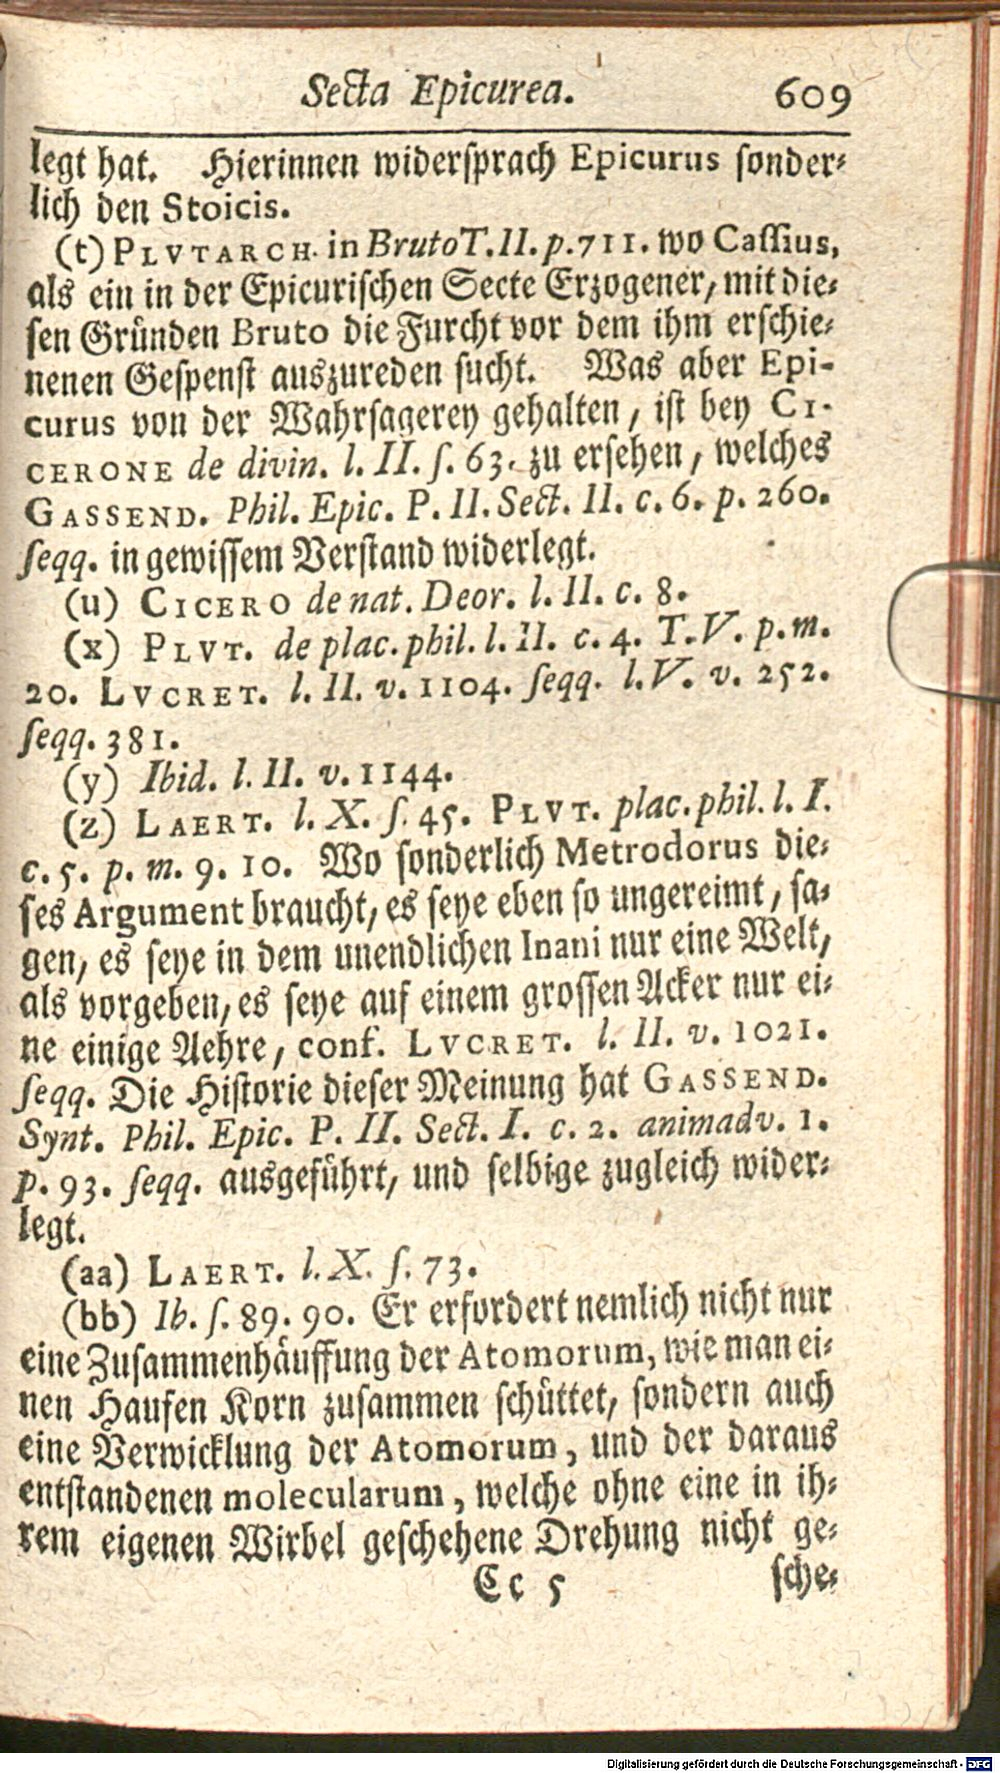 Secta Epicurea. 609
legt hat. Hierinnen widersprach Epicurus sonder-
lich den Stoicis.
(t) PLVTARCH. in Bruto T. II. p. 711. wo Cassius,
als ein in der Epicurischen Secte Erzogener, mit die-
sen Gründen Bruto die Furcht vor dem ihm erschie-
nenen Gespenst auszureden sucht. Was aber Epi-
curus von der Wahrsagerey gehalten, ist bey CI-
CERONE de divin. l. II. ſ. 63. zu ersehen, welches
GASSEND. Phil. Epic. P. II. Sect. II. c. 6. p. 260.
seqq. in gewissem Verstand widerlegt.
(u) CICERO de nat. Deor. l. II. c. 8.
(x) PLVT. de plac. phil. l. II. c. 4. T. V. p. m.
20. LVCRET. l. II. v. 1104. seqq. l. V. v. 252.
seqq. 381.
(y) Ibid. l. II. v. 1144.
(z) LAERT. l. X. ſ. 45. PLVT. plac. phil. l. I.
c. 5. p. m. 9. 10. Wo sonderlich Metrodorus die-
ses Argument braucht, es seye eben so ungereimt, sa-
gen, es seye in dem unendlichen Inani nur eine Welt,
als vorgeben, es seye auf einem grossen Acker nur ei-
ne einige Aehre, conf. LVCRET. l. II. v. 1021.
seqq. Die Historie dieser Meinung hat GASSEND.
Synt. Phil. Epic. P. II. Sect. I. c. 2. animadv. 1.
p. 93. seqq. ausgeführt, und selbige zugleich wider-
legt.
(aa) LAERT. l. X. ſ. 73.
(bb) Ib. ſ. 89. 90. Er erfordert nemlich nicht nur
eine Zusammenhäuffung der Atomorum, wie man ei-
nen Haufen Korn zusammen schüttet, sondern auch
eine Verwicklung der Atomorum, und der daraus
entstandenen molecularum, welche ohne eine in ih-
rem eigenen Wirbel geschehene Drehung nicht ge-
Cc 5 sche-
Digitalisierung gefördert durch die Deutsche Forschungsgemeinschaft - DFG